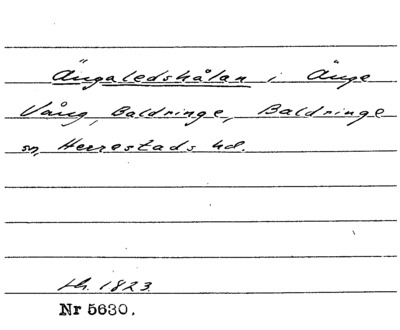 Ängaledshålan i Änge
Vång, Baldringe, Baldringe
sn, Herrestads hd.
Lh. 1823.
Nr 5630.